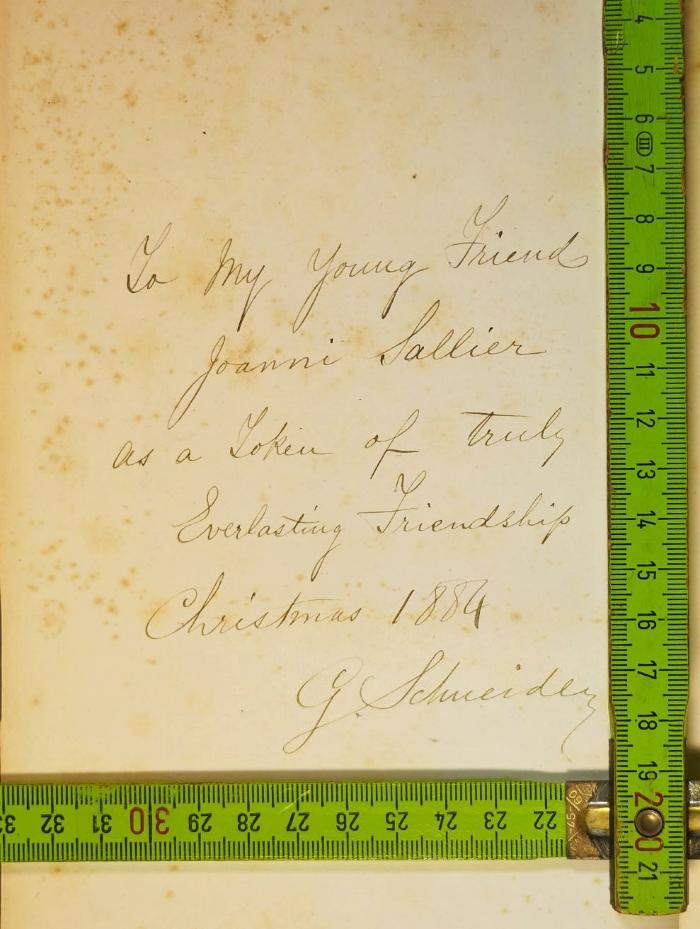 To My Young Friend
Joanni Sallier
as a Token of truly
Everlasting Friendship
Christmas 1884
G. Schneider
4
5
6
III
7
8
9
10
11
12
13
14
15
16
17
18
19
20
21
33 32 31 30 29 28 27 26 25 24 23 22